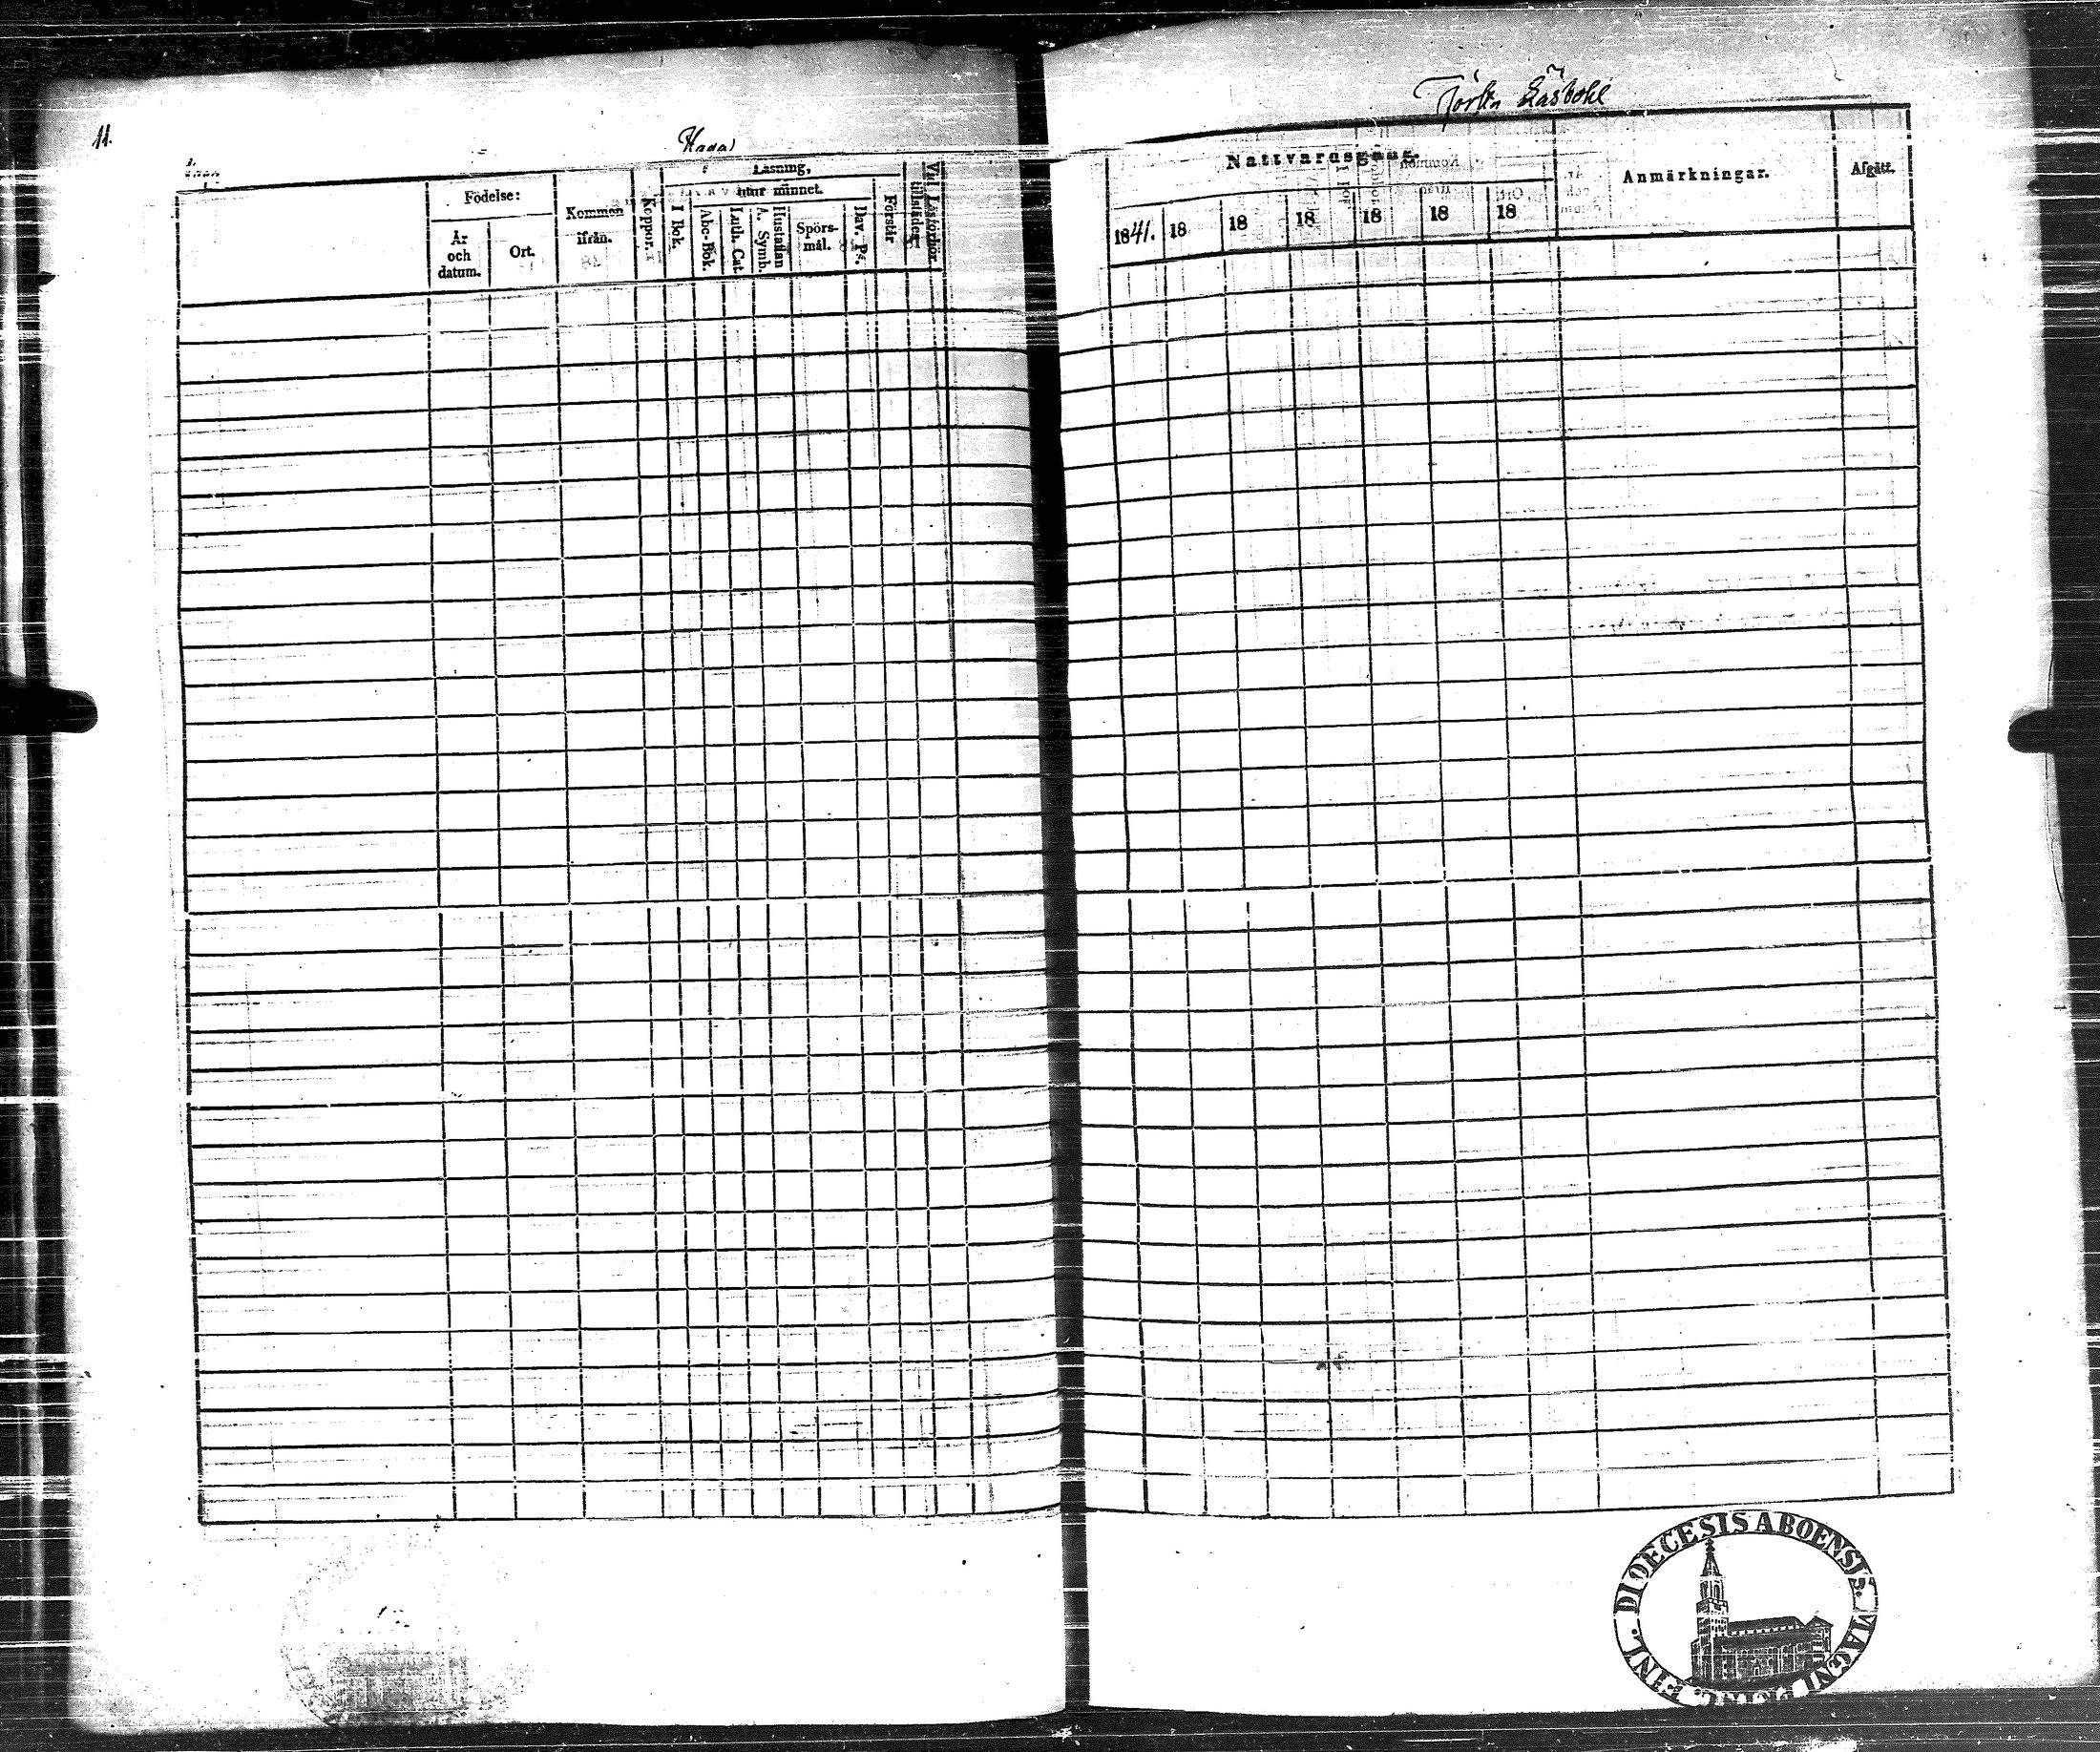 11.
Haga
Födelse:
År
och
datum.
Ort.
Kommen
ifrån.
Koppor.
Läsning,
utur minnet.
I Bok.
Abc-Bok.
Luth. Cat.
A. Symb.
Hustaflan
Spörs-
mål.
Dav. Ps.
Förstår
Vid Läsförhör
tillstädes.
Nattvardsgång.
1841.
18
18
18
18
18
18
Anmärkningar.
Afgått.
DIOECESIS ABOENSIS. MAGNI PRINC. FINL.